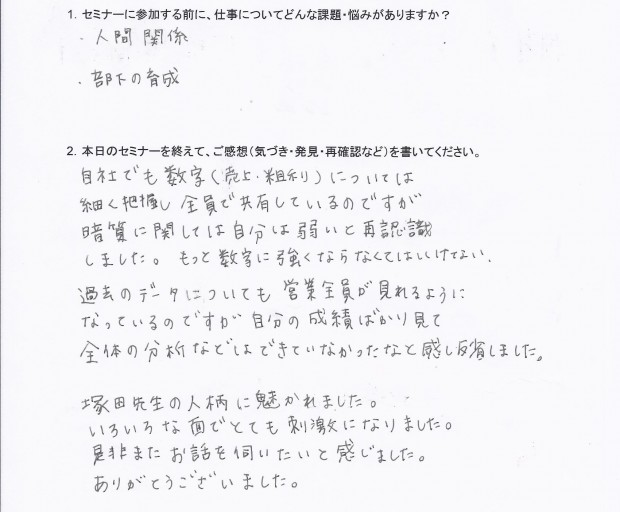 1. セミナーに参加する前に、仕事についてどんな課題・悩みがありますか？
・人間関係
・部下の育成
2. 本日のセミナーを終えて、ご感想(気づき・発見・再確認など)を書いてください。
自社でも数字(売上・粗利)については
細く把握し全員で共有しているのですが
暗算に関しては自分は弱いと再認識
しました。もっと数字に強くならなくてはいけない。
過去のデータについても営業全員が見れるように
なっているのですが自分の成績ばかり見て
全体の分析などはできていなかったなと感じ反省しました。
塚田先生の人柄に魅かれました。
いろいろな面でとても刺激になりました。
是非またお話を伺いたいと感じました。
ありがとうございました。